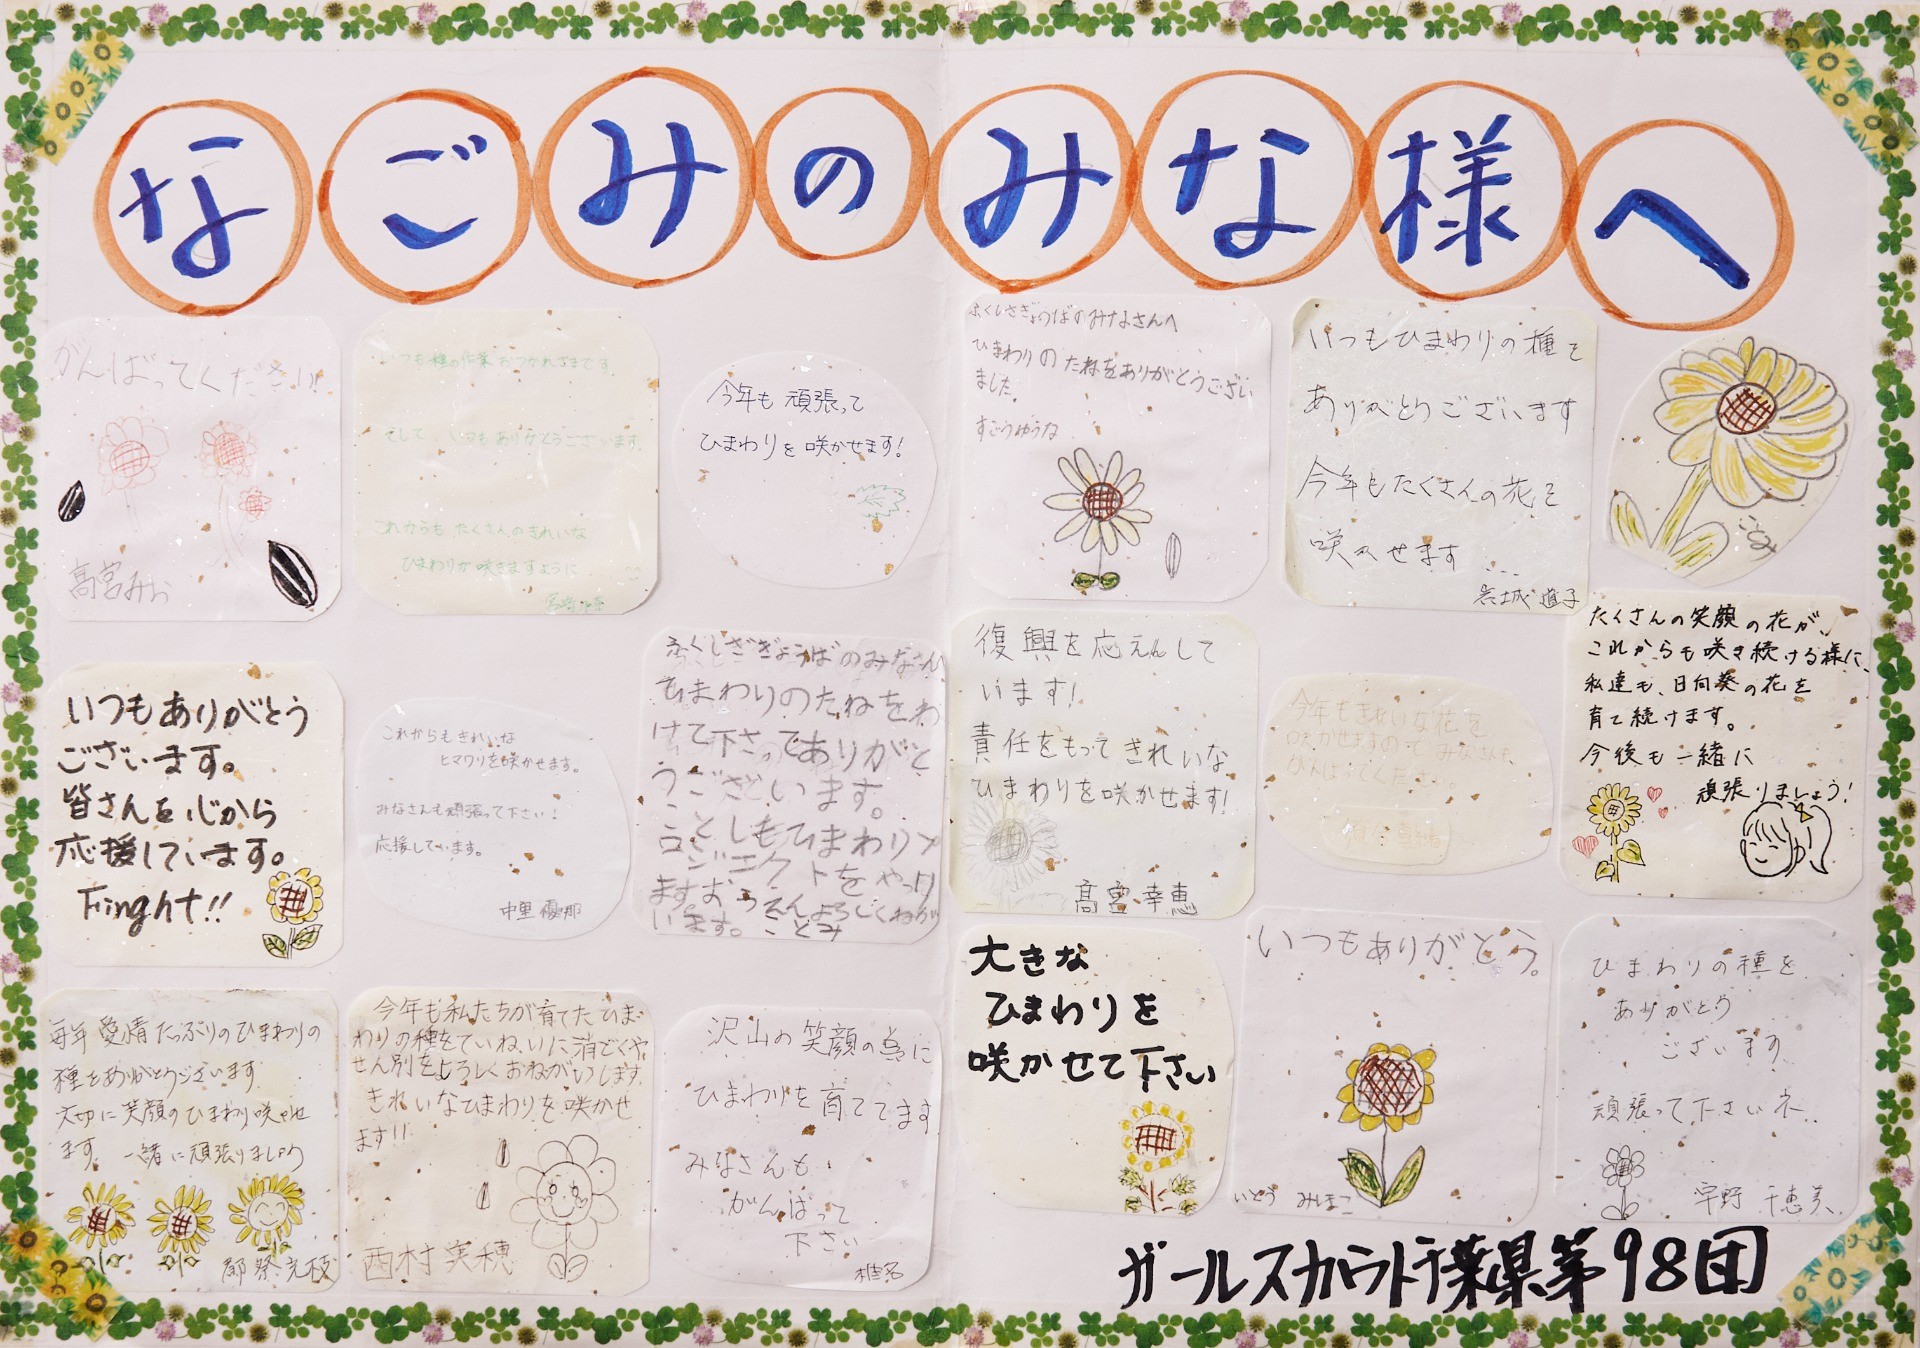 なごみのみな様へ
がんばってください!
高宮みお
いつも種の作業おつかれさまです。
そして、いつもありがとうございます。
これからもたくさんのきれいな
ひまわりが咲きますように
今年も頑張って
ひまわりを咲かせます!
ふくしさぎょうばのみなさんへ
ひまわりのたねをありがとうござい
ました。
すごうゆうな
いつもひまわりの種を
ありがとうございます
今年もたくさんの花を
咲かせます...
岩城道子
ことみ
いつもありがとう
ございます。
皆さんを心から
応援しています。
Finght!!
これからもきれいな
ヒマワリを咲かせます。
みなさんも頑張って下さい!
応援しています。
中里優那
ふくしざぎょうばのみなさん
ひまわりのたねをわ
けて下さってありがと
うございます。
ことしもひまわり
ロジェクトをやっけ
ますおうえんよろしくねがい
います。ことみ
復興を応えんして
います!
責任をもってきれいな
ひまわりを咲かせます!
髙宮幸恵
今年もきれいな花を
咲かせますのでみなさんも、
がんばってください。
たくさんの笑顔の花が、
これからも咲き続ける様に、
私達も、日向葵の花を
育て続けます。
今後も一緒に
頑張りましょう!
毎年愛情たっぷりのひまわりの
種をありがとうございます
大切に笑顔のひまわり咲かせ
ます。一緒に頑張りましょう
今年も私たちが育てたひま
わりの種をていねいに消どくや
せん別をよろしくおねがいします。
きれいなひまわりを咲かせ
ます!!
西村実穂
沢山の笑顔の為に
ひまわりを育ててます
みなさんも
がんばって
下さい
椎名
大きな
ひまわりを
咲かせて下さい
いつもありがとう。
いとう みほこ
ひまわりの種を
ありがとう
ございます
頑張って下さいネ..
宇野 千恵美
ガールスカウト千葉県第98団